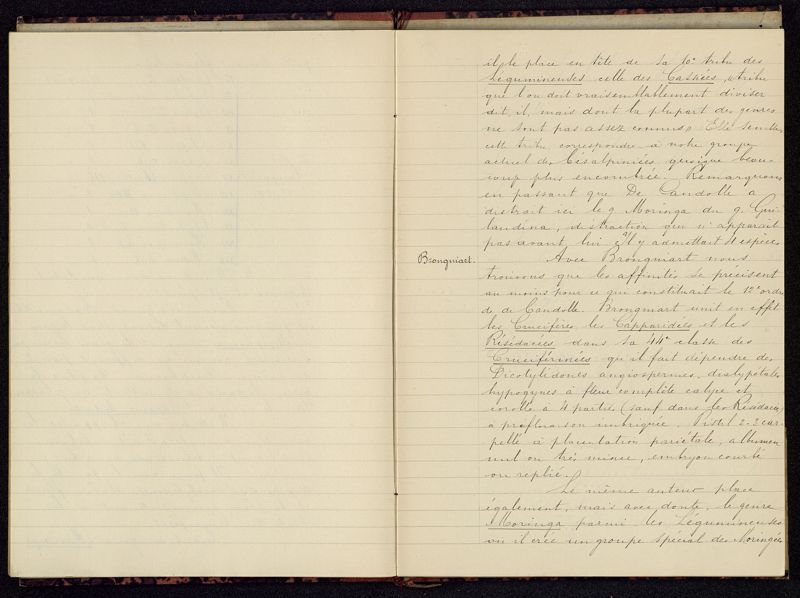 il le place en tête de sa 10e tribu des
Légumineuses celle des Cassiées, "tribu
que l'on doit vraisemblablement diviser
dit, il, mais dont la plupart des genres
ne sont pas assez connus. Elle semble,
cette tribu correspondre à notre groupe
actuel des Césalpiniées, quoique beau-
coup plus encombrée. Remarquons
en passant que De Candolle a
distrait ici le g. Moringa du g. Gui-
landina, distraction qui n'apparait
pas avant lui qu'il y admettait 4 espèces.
Brongniart.
Avec Brongniart nous
trouvons que les affinités se précisent
au moins pour ce qui constituait le 12e ordre
de de Candolle. Brongniart unit en effet
les Crucifères, les Capparidées et les
Résédacées dans sa 44e classe des
Cruciférinées qu'il fait dépendre des
Dicotylédones angiospermes, dialypétales
hypogynes à fleur complète calyce et
corolle à 4 parties (sauf dans les Résédacées)
à préfloraison imbriquée. Pistil 2-3 car-
pelle à placentation pariétale, albumen
nul ou très mince, embryon courbé
ou replié.
Le même auteur place
également, mais avec doute, le genre
Moringa parmi les Légumineuses
où il crée un groupe spécial des Moringées